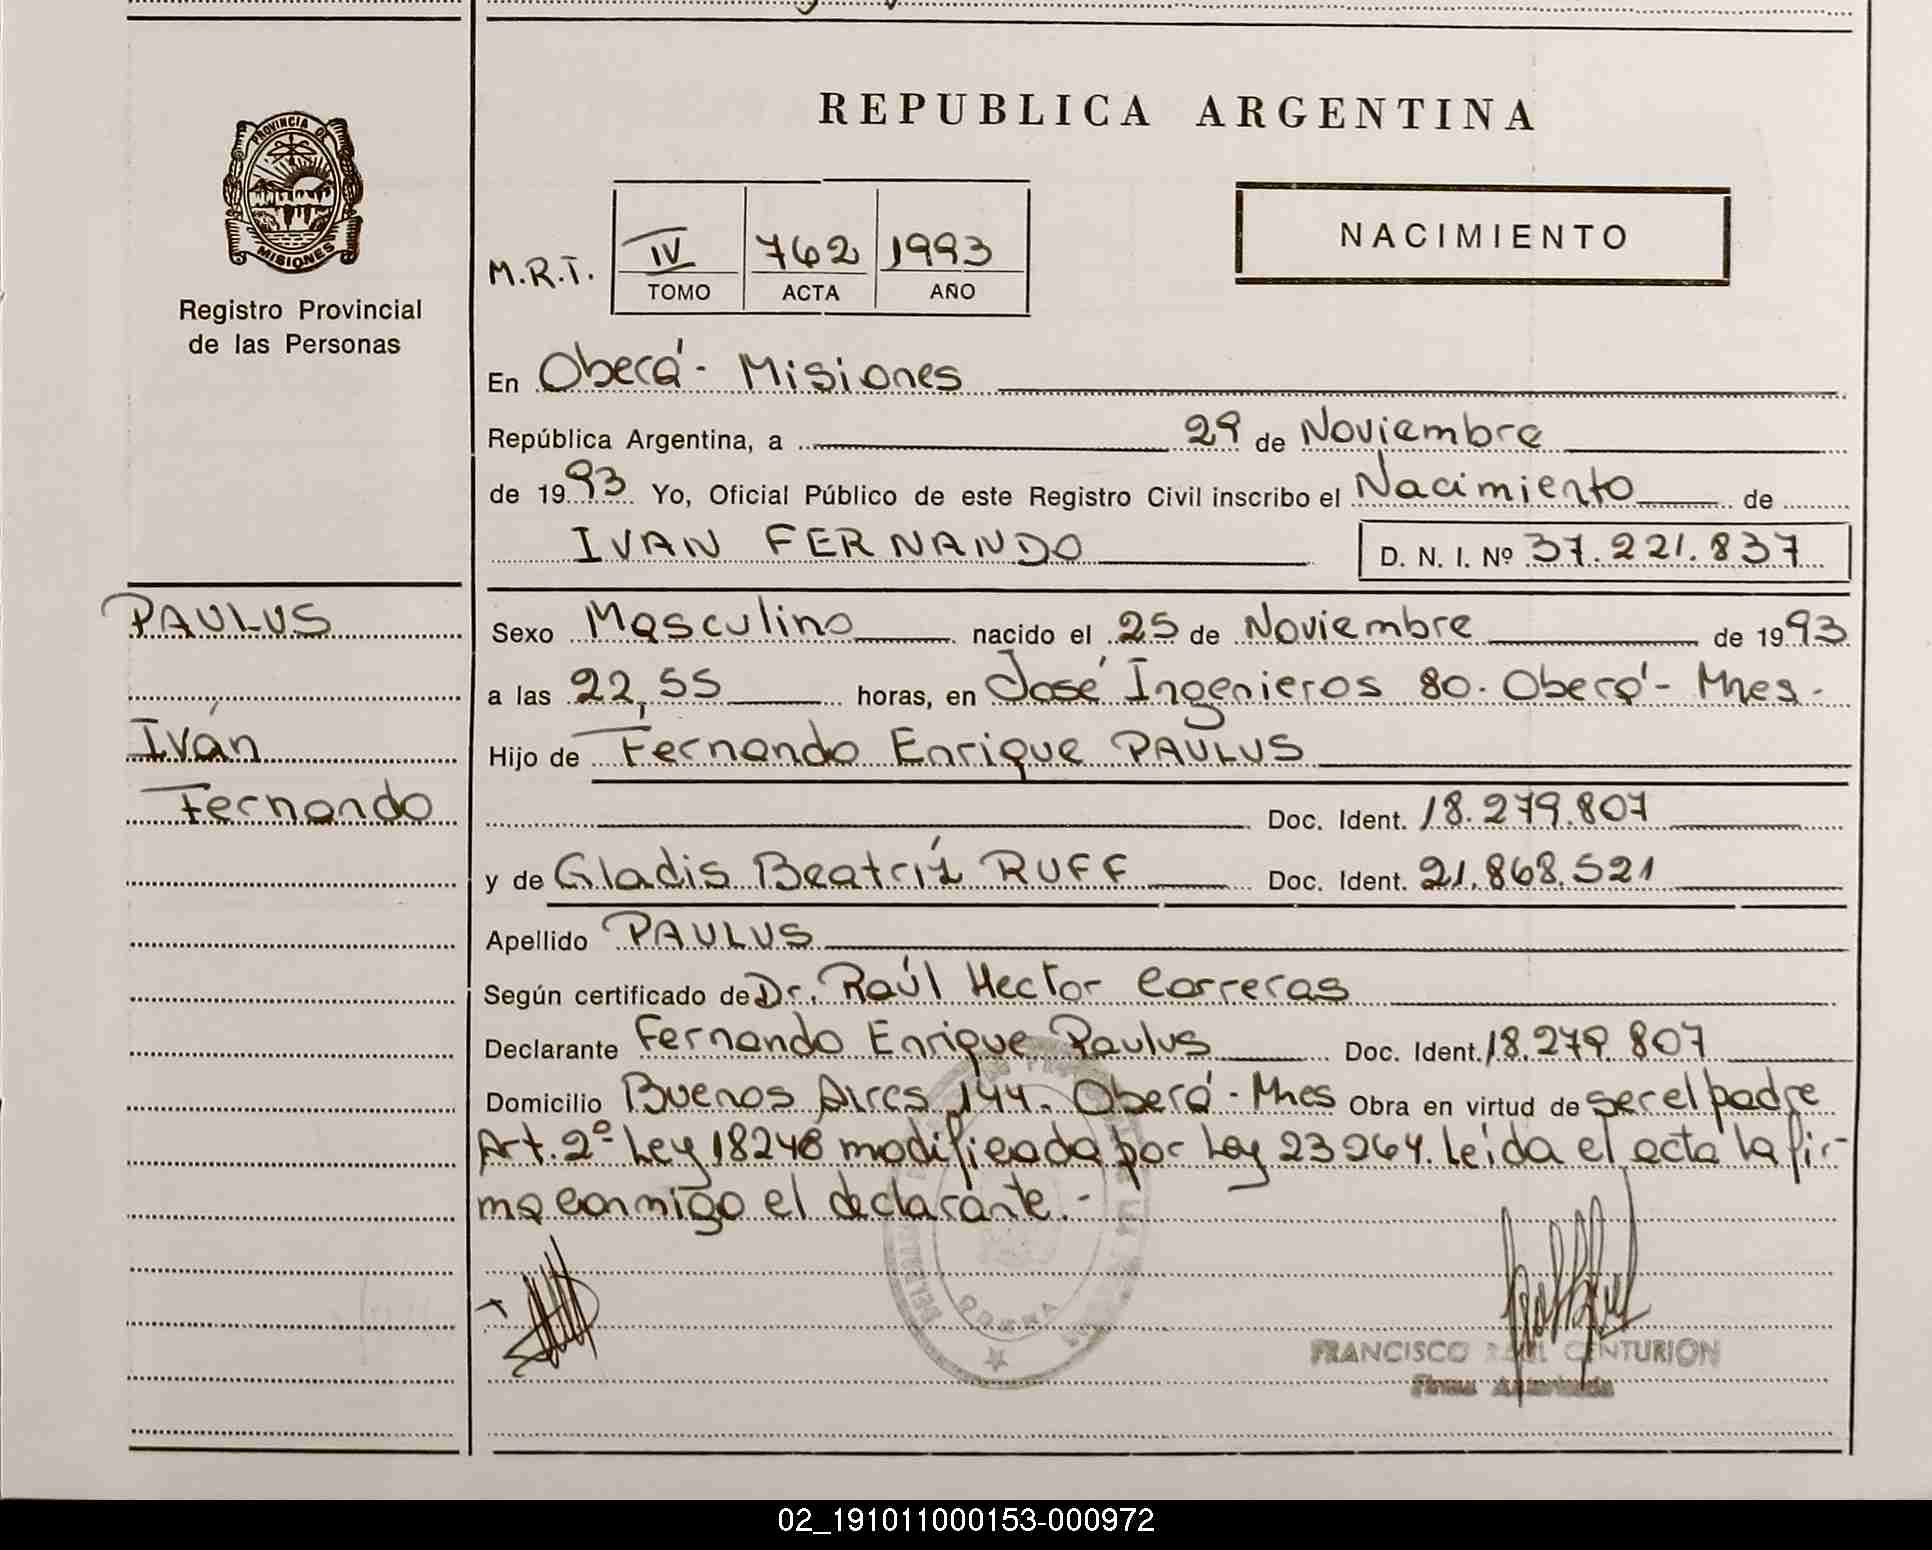 REPUBLICA ARGENTINA
PROVINCIA DE
MISIONES
Registro Provincial
de las Personas
NACIMIENTO
M.R.T.
IV 762 1993
TOMO ACTA AÑO
En Oberá - Misiones
República Argentina, a 29 de Noviembre
de 1993 Yo, Oficial Público de este Registro Civil inscribo el Nacimiento de
IVAN FERNANDO D. N. I. Nº 37.221.837
PAULUS
Iván
Fernando
Sexo Masculino nacido el 25 de Noviembre de 1993
a las 22,55 horas, en José Ingenieros 80. Oberá - Mnes.
Hijo de Fernando Enrique PAULUS
Doc. Ident. 18.279.807
y de Gladis Beatríz RUFF Doc. Ident. 21.868.521
Apellido PAULUS
Según certificado de Dr. Raúl Hector Correras
Declarante Fernando Enrique Paulus Doc. Ident. 18.279.807
Domicilio Buenos Aires 144. Oberá - Mnes Obra en virtud de ser el padre
Art. 2º Ley 18248 modificada por Ley 23264. Leída el acta la fir-
ma conmigo el declarante.-
FRANCISCO RAUL CENTURION
Firma Autorizada
02_191011000153-000972